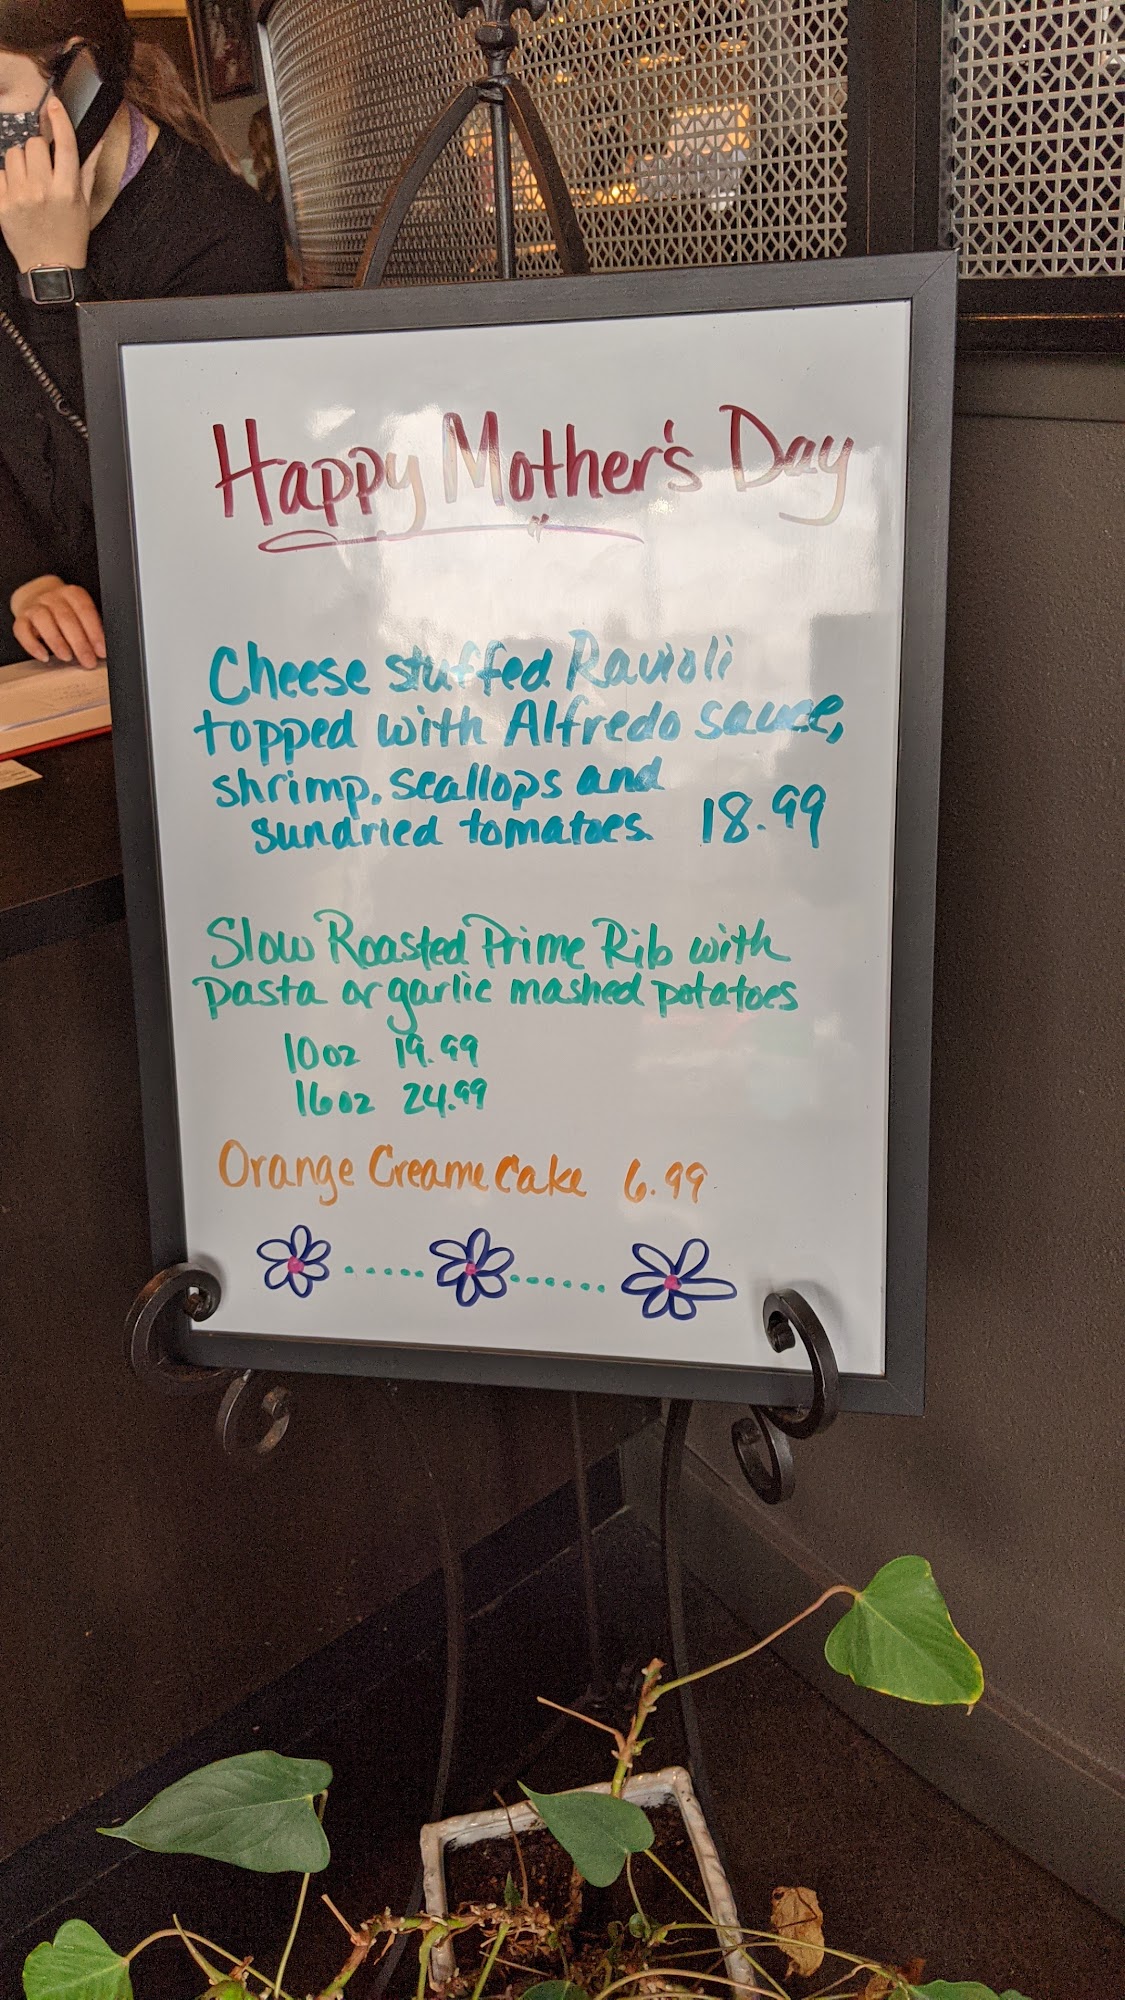 Happy Mother's Day
Cheese stuffed Ravioli
topped with Alfredo sauce,
shrimp, scallops and
sundried tomatoes. 18.99
Slow Roasted Prime Rib with
pasta or garlic mashed potatoes
10oz 19.99
16oz 24.99
Orange Creame Cake 6.99